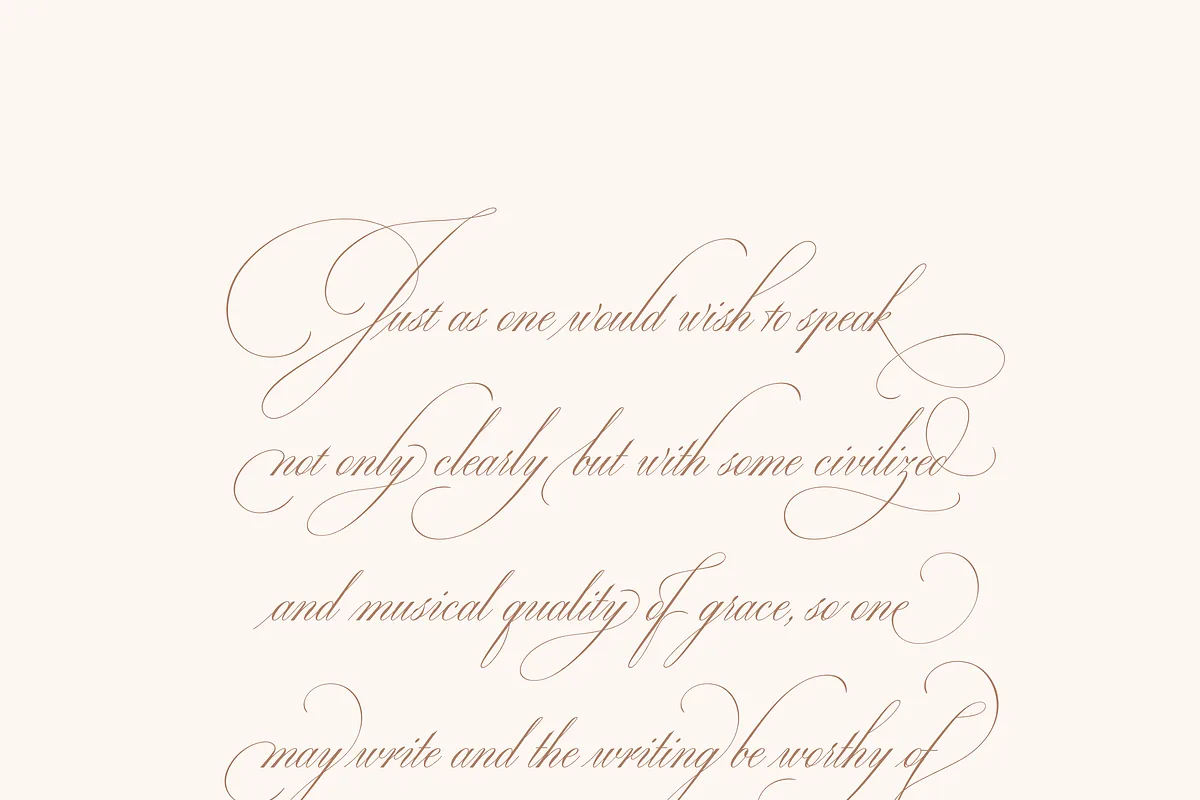 Just as one would wish to speak
not only clearly but with some civilized
and musical quality of grace, so one
may write and the writing be worthy of